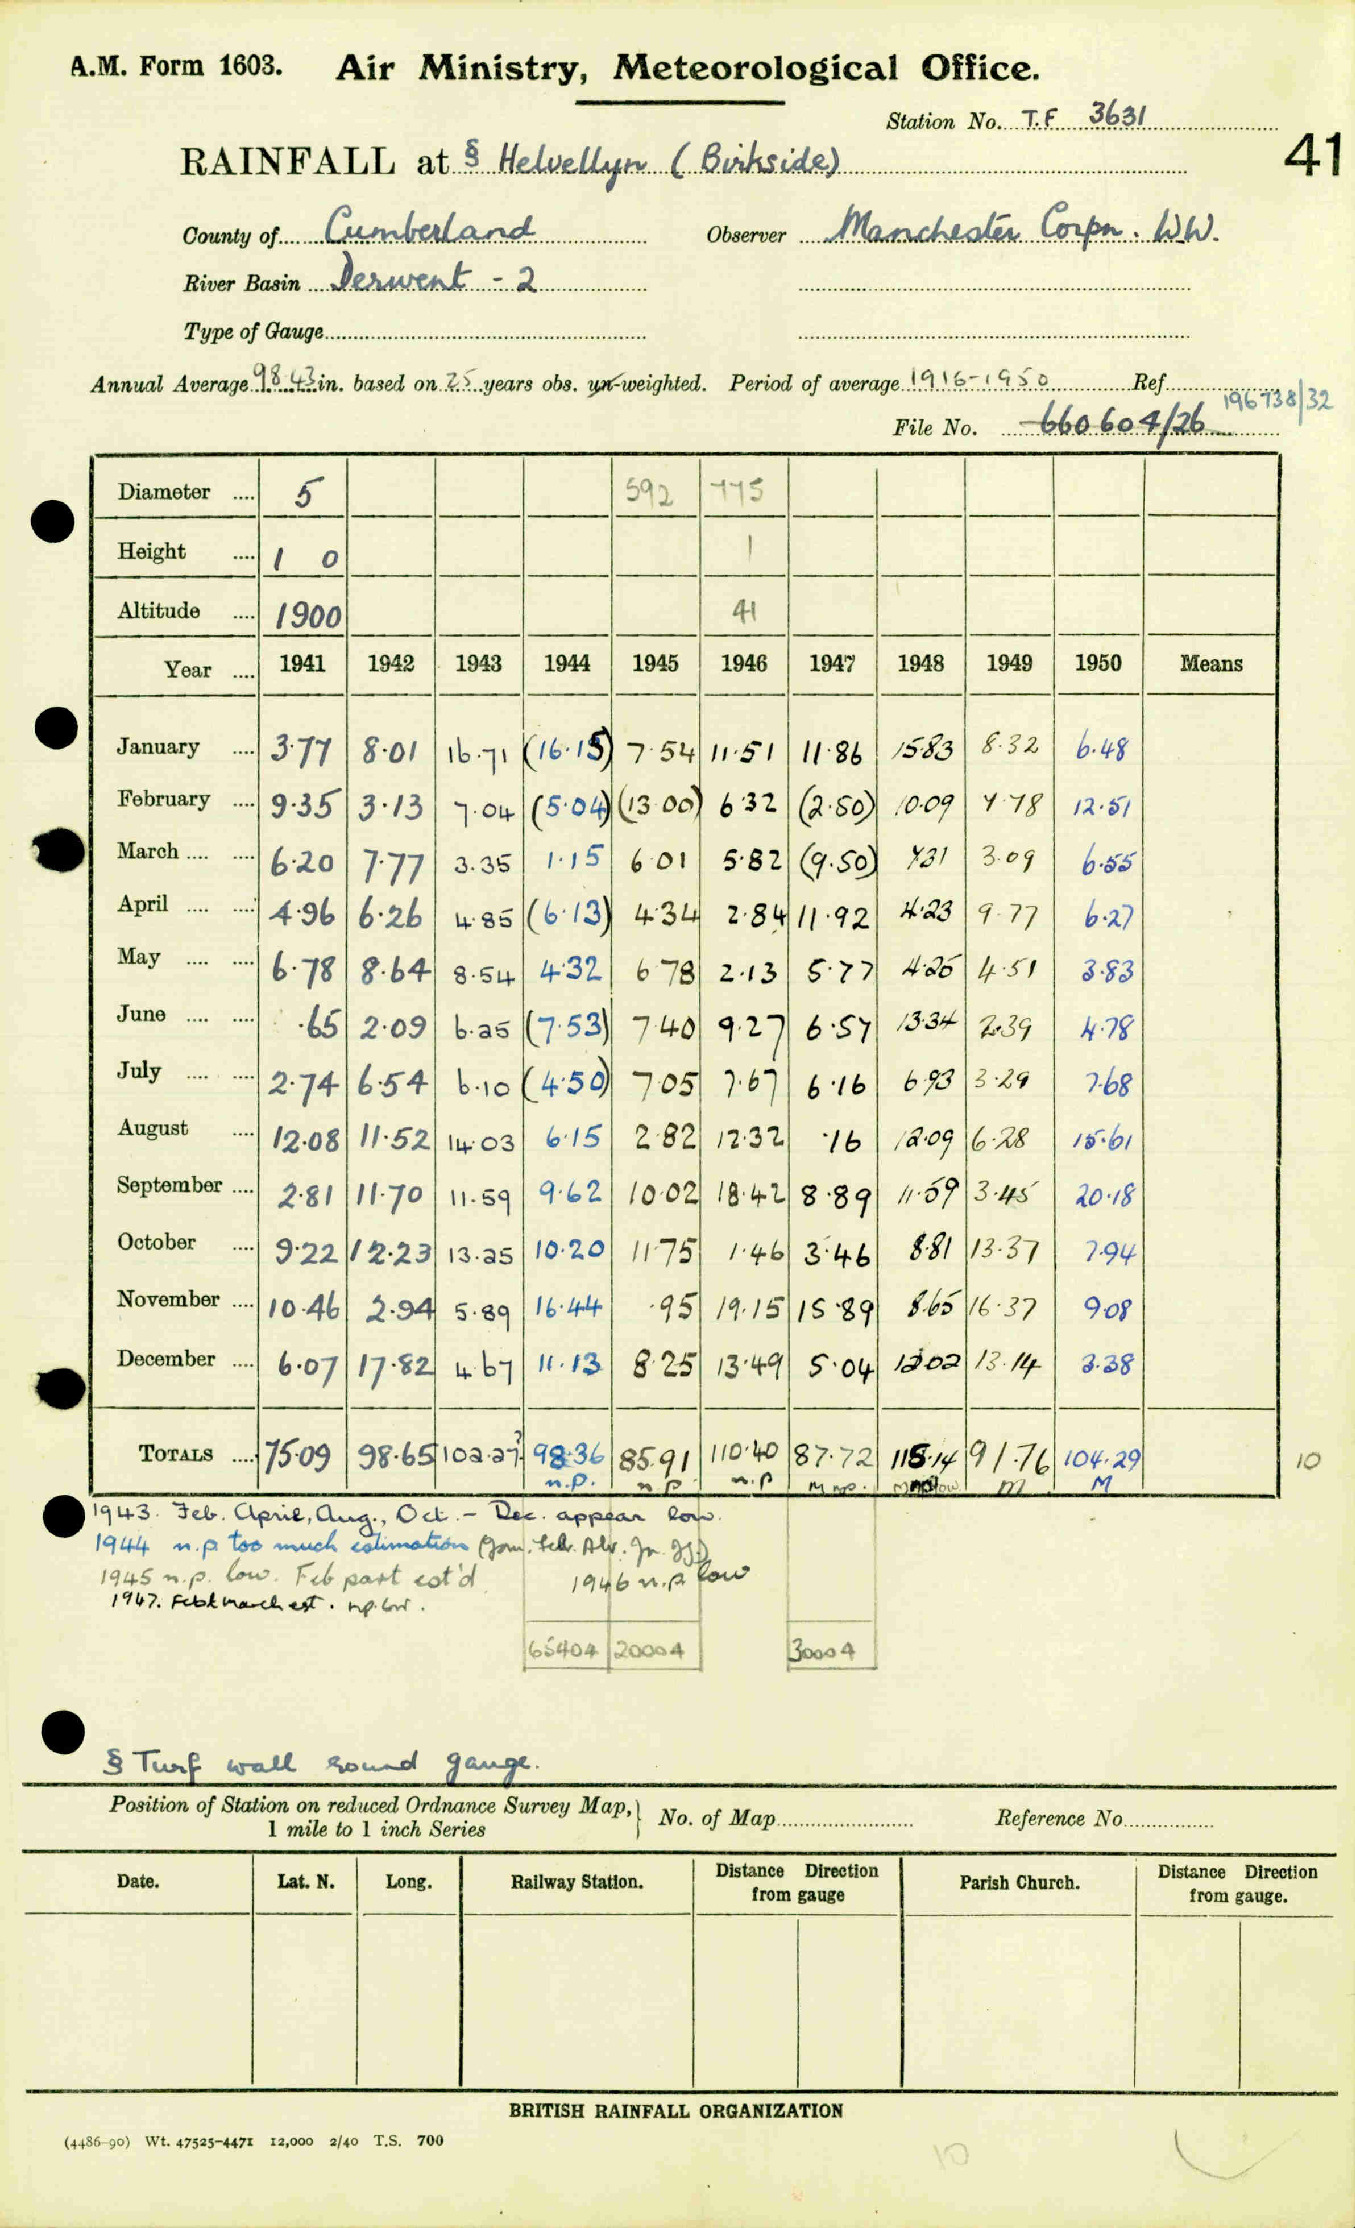 A.M. Form 1603. Air Ministry, Meteorological Office.
Station No. T.F 3631
RAINFALL at § Helvellyn (Birkside)
41
County of Cumberland Observer Manchester Corpn. W.W.
River Basin Derwent - 2
Type of Gauge
Annual Average 98.43 in. based on 25 years obs. un-weighted. Period of average 1916-1950 Ref. 196738/32
File No. 660604/26
Diameter .... 5 592 775
Height .... 1 0 1
Altitude .... 1900 41
Year .... 1941 1942 1943 1944 1945 1946 1947 1948 1949 1950 Means
January .... 3.77 8.01 16.71 (16.15) 7.54 11.51 11.86 15.83 8.32 6.48
February .... 9.35 3.13 7.04 (5.04) (13.00) 6.32 (2.50) 10.09 7.78 12.51
March .... .... 6.20 7.77 3.35 1.15 6.01 5.82 (9.50) 7.31 3.09 6.55
April .... .... 4.96 6.26 4.85 (6.13) 4.34 2.84 11.92 4.23 9.77 6.27
May .... .... 6.78 8.64 8.54 4.32 6.78 2.13 5.77 4.25 4.51 3.83
June .... .... .65 2.09 6.25 (7.53) 7.40 9.27 6.57 13.34 2.39 4.78
July .... .... 2.74 6.54 6.10 (4.50) 7.05 7.67 6.16 6.93 3.29 7.68
August .... 12.08 11.52 14.03 6.15 2.82 12.32 .16 12.09 6.28 15.61
September .... 2.81 11.70 11.59 9.62 10.02 18.42 8.89 11.59 3.45 20.18
October .... 9.22 12.23 13.25 10.20 11.75 1.46 3.46 8.81 13.37 7.94
November .... 10.46 2.94 5.89 16.44 .95 19.15 15.89 8.65 16.37 9.08
December .... 6.07 17.82 4.67 11.13 8.25 13.49 5.04 12.02 13.14 3.38
TOTALS .... 75.09 98.65 102.27? 98.36 85.91 110.40 87.72 115.14 91.76 104.29 10
n.p. n.p n.p M n.p. M np low m M
1943. Feb. April, Aug., Oct. - Dec. appear low.
1944 n.p. too much estimation (Jan. Feb. Apr. Jn. Jy)
1945 n.p. low. Feb part est'd 1946 n.p. low
1947. Feb & March est. n.p. low.
65404 20004 30004
§ Turf wall round gauge.
Position of Station on reduced Ordnance Survey Map, 1 mile to 1 inch Series } No. of Map Reference No.
Date. Lat. N. Long. Railway Station. Distance Direction from gauge Parish Church. Distance Direction from gauge.
BRITISH RAINFALL ORGANIZATION
(4486-90) Wt. 47525-4471 12,000 2/40 T.S. 700
10